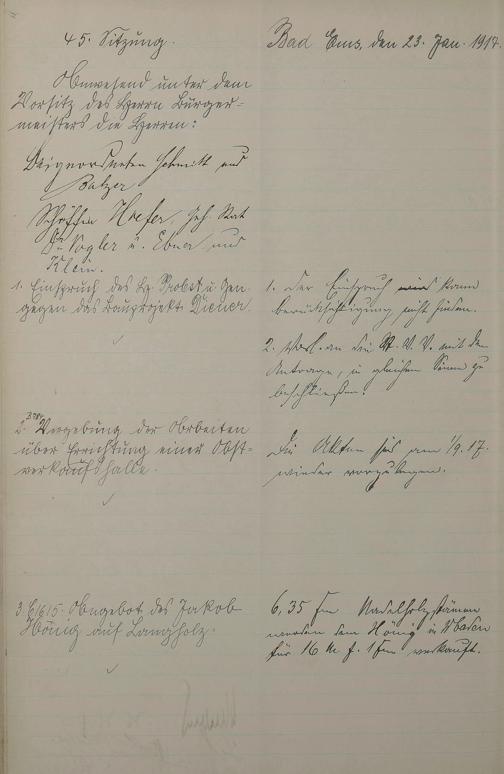 45. Sitzung.
Bad Ems, den 23. Jan. 1917.
Anwesend unter dem
Vorsitz des Herrn Bürger-
meisters die Herren:
Beigeordneten Schmitt und
Balzer
Schöffen Hoefer, Geh. Rat
Dr. Vogler u. Ebner und
Klein.
1. Einspruch des Hg. Probst u. Gen.
gegen das Bauprojekt Diener
1. Der Einspruch kann
Berücksichtigung nicht finden.
2. Vorl. an die St. V. V. mit dem
Antrage, in gleichem Sinne zu
beschließen.
2. Vergebung der Arbeiten
über Errichtung einer Obst-
verkaufshalle.
Die Akten sind am 1/9. 17.
wieder vorzulegen.
3. 1615. Angebot des Jakob
König auf Langholz.
6,35 fm Nadelholzstämme
werden dem König in
für 16 M f. 1 fm verkauft.